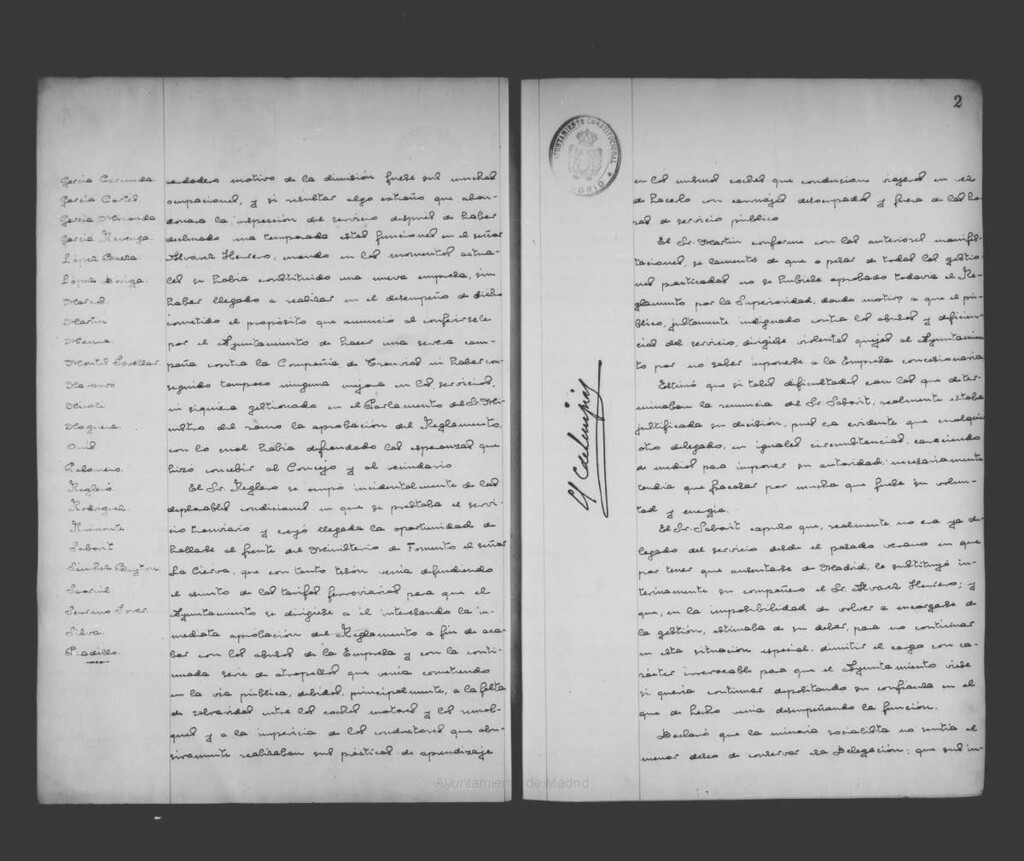 García Cernuda
García Cortés
García Miranda
García Revenga
López Baeza
López Dóriga
Marcos
Martín
Mesa
Montes Jovellar
Navarro
Nicoli
Noguera
Onís
Palomero
Regleró
Rodríguez
Ruimonte
Saborit
Sánchez Bayton
Serrano Jover
Silva
Pradillo
verdadero motivo de la dimisión fuese sus muchas
ocupaciones, y sí resultar algo extraño que aban-
donara la inspección del servicio después de haber
declinado una temporada estas funciones en el señor
Alvarez Herrero, cuando en los momentos actua-
les se había constituido una nueva empresa, sin
haber llegado a realizar en el desempeño de dicho
cometido el propósito que anunció al conferírsele
por el Ayuntamiento de hacer una seria cam-
paña contra la Compañía de Tranvías ni haber con-
seguido tampoco ninguna mejora en los servicios,
ni siquiera gestionado en el Parlamento del Sr. Mi-
nistro del ramo la aprobación del Reglamento,
con lo cual había defraudado las esperanzas que
hizo concebir al Concejo y al vecindario.
El Sr. Reglero se ocupó incidentalmente de las
deplorables condiciones en que se prestaba el servi-
cio tranviario y creyó llegada la oportunidad de
hallarse al frente del Ministerio de Fomento el señor
La Cierva, que con tanto tesón venía defendiendo
el asunto de las tarifas ferroviarias para que el
Ayuntamiento se dirigiese a él interesando la in-
mediata aprobación del Reglamento a fin de aca-
bar con los abusos de la Empresa y con la conti-
nuada serie de atropellos que venía cometiendo
en la vía pública, debidos, principalmente, a la falta
de salvavidas entre los coches motores y los remol-
ques y a la impericia de los conductores que abu-
sivamente realizaban sus prácticas de aprendizaje
2
AYUNTAMIENTO CONSTITUCIONAL
MADRID
en los mismos coches que conducían viajeros en vez
de hacerlo con carruajes desocupados y fuera de las ho-
ras de servicio público
El Sr. Martín conforme con las anteriores manifes-
taciones, se lamentó de que a pesar de todas las gestio-
nes practicadas no se hubiese aprobado todavía el Re-
glamento por la Superioridad, dando motivo a que el pú-
blico, justamente indignado contra los abusos y deficien-
cias del servicio, dirigiese violentas quejas al Ayuntamien-
to por no saber imponerse a la Empresa concesionaria
Estimó que si tales dificultades eran las que deter-
minaban la renuncia del Sr. Saborit, realmente estaba
justificada su decisión, pues era evidente que cualquier
otro delegado, en iguales circunstancias, careciendo
de medios para imponer su autoridad, necesariamente
tendría que fracasar por mucha que fuese su volun-
tad y energía.
El Sr. Saborit expuso que, realmente, no era ya de-
legado del servicio desde el pasado verano en que
por tener que ausentarse de Madrid, le substituyó in-
ternamente su compañero el Sr. Alvarez Herrero; y
que, en la imposibilidad de volver a encargarse de
la gestión, estimaba de su deber, para no continuar
en esta situación especial, dimitir el cargo con ca-
rácter irrevocable para que el Ayuntamiento viese
si quería continuar depositando su confianza en el
que de hecho venía desempeñando la función.
Declaró que la minoría socialista no sentía el
menor deseo de conservar esta Delegación; que sus in-
Ayuntamiento de Madrid